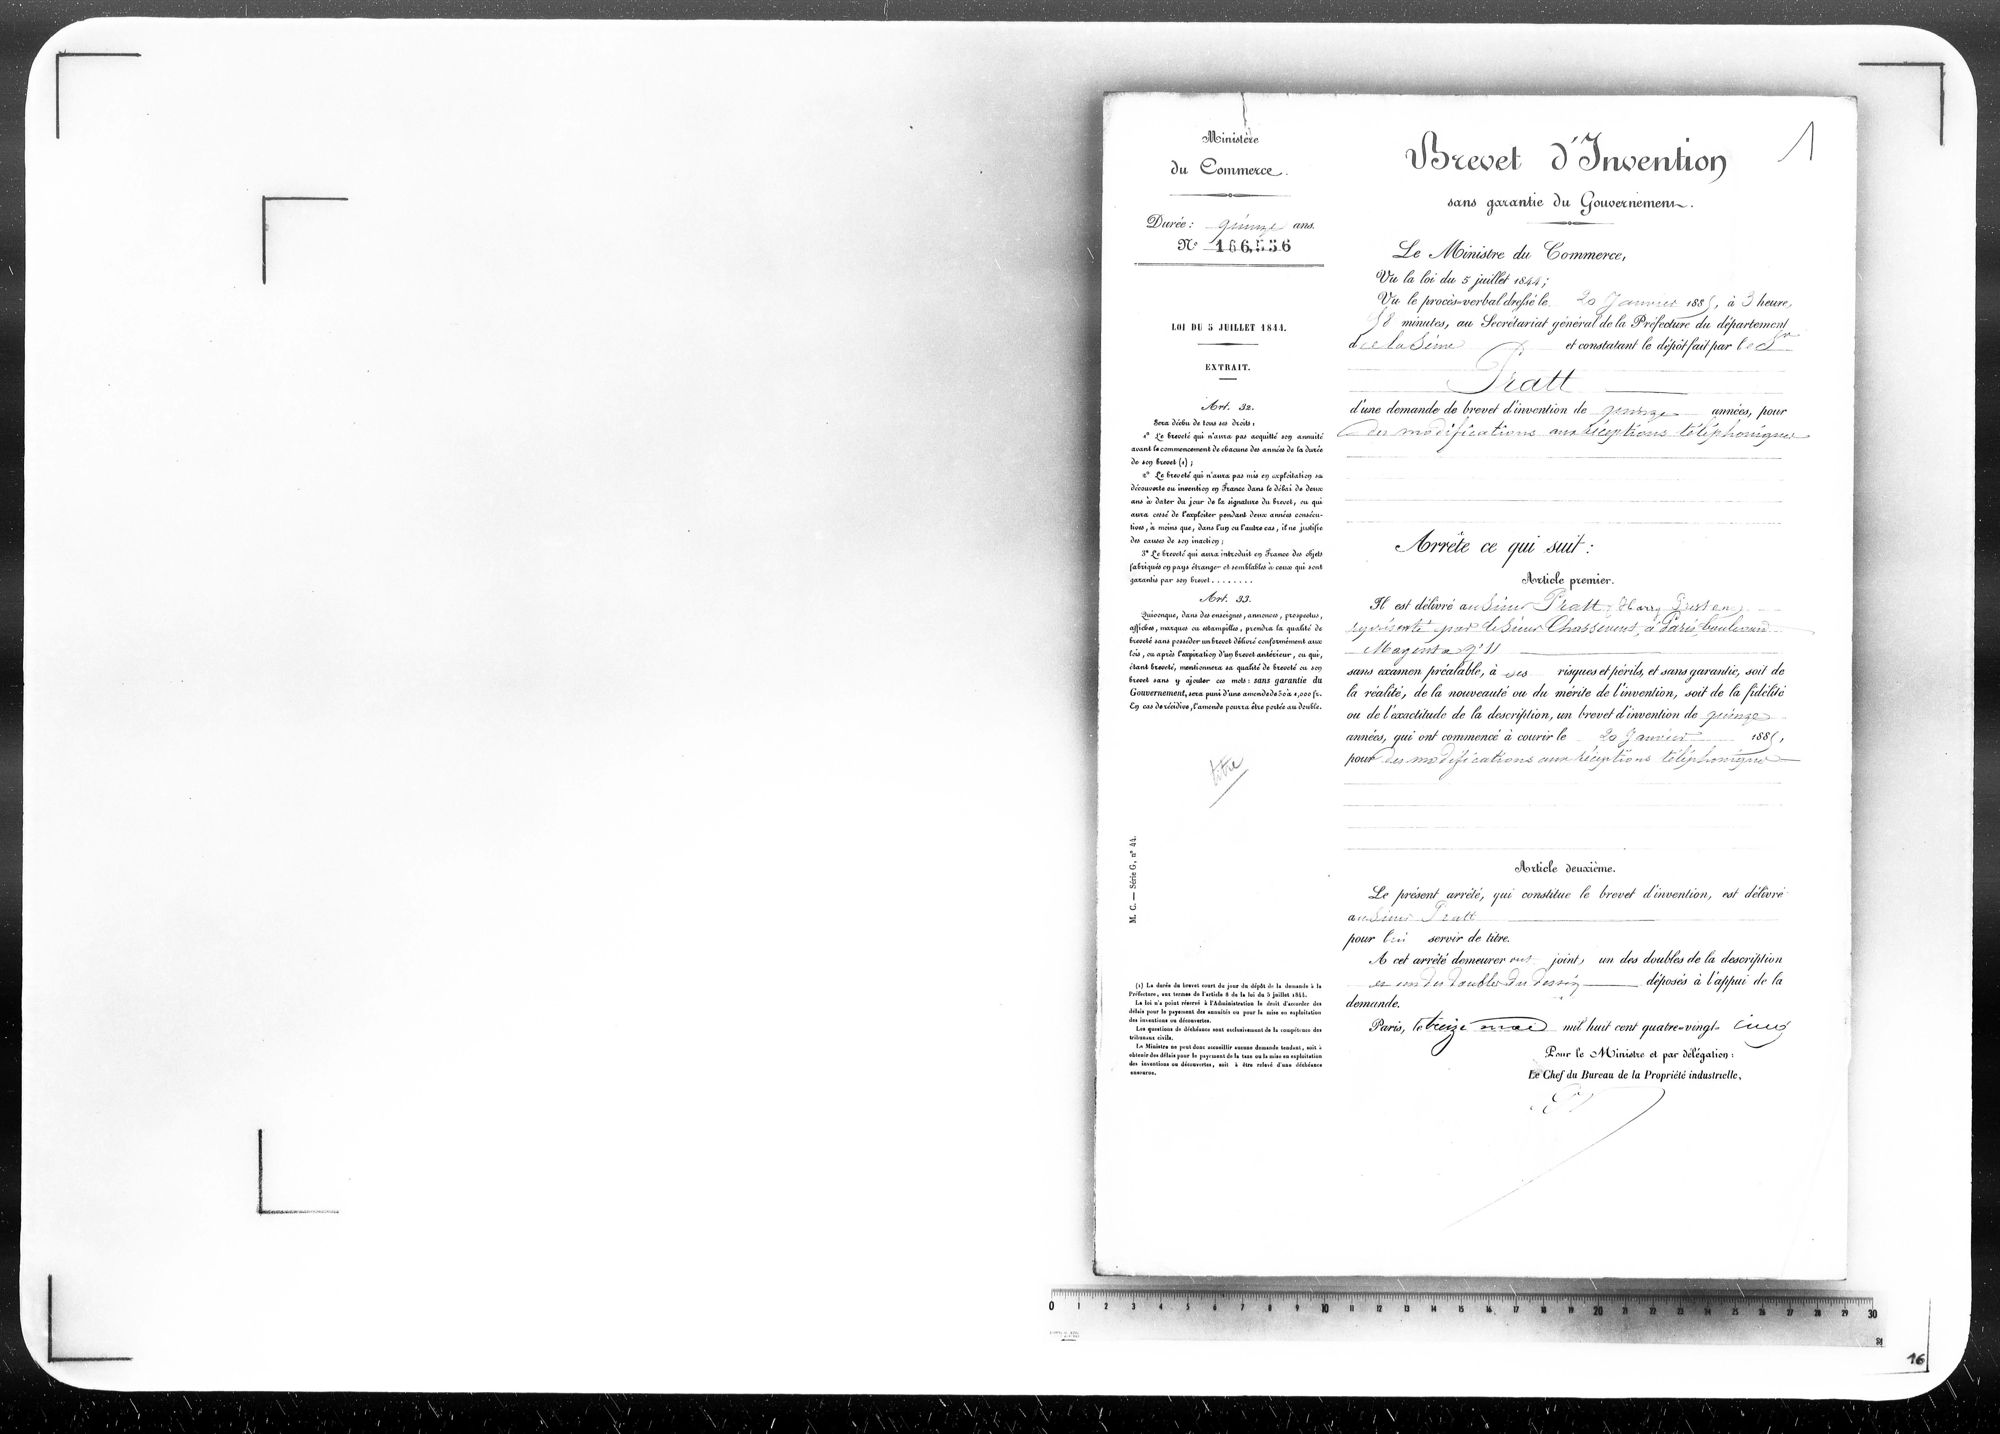 Ministère
du Commerce.
Durée: quinze ans.
N° 166,536
LOI DU 5 JUILLET 1844.
EXTRAIT.
Art. 32.
Sera déchu de tous ses droits:
1° Le breveté qui n'aura pas acquitté son annuité
avant le commencement de chacune des années de la durée
de son brevet (1);
2° Le breveté qui n'aura pas mis en exploitation sa
découverte ou invention en France dans le délai de deux
ans à dater du jour de la signature du brevet, ou qui
aura cessé de l'exploiter pendant deux années consécu-
tives, à moins que, dans l'un ou l'autre cas, il ne justifie
des causes de son inaction;
3° Le breveté qui aura introduit en France des objets
fabriqués en pays étranger et semblables à ceux qui sont
garantis par son brevet........
Art. 33.
Quiconque, dans des enseignes, annonces, prospectus,
affiches, marques ou estampilles, prendra la qualité de
breveté sans posséder un brevet délivré conformément aux
lois, ou après l'expiration d'un brevet antérieur, ou qui,
étant breveté, mentionnera sa qualité de breveté ou son
brevet sans y ajouter ces mots: sans garantie du
Gouvernement, sera puni d'une amende de 50 à 1,000 fr.
En cas de récidive, l'amende pourra être portée au double.
titre
M. C. — Série G, n° 44.
(1) La durée du brevet court du jour du dépôt de la demande à la
Préfecture, aux termes de l'article 8 de la loi du 5 juillet 1844.
La loi n'a point réservé à l'Administration le droit d'accorder des
délais pour le payement des annuités ou pour la mise en exploitation
des inventions ou découvertes.
Les questions de déchéance sont exclusivement de la compétence des
tribunaux civils.
Le Ministre ne peut donc accueillir aucune demande tendant, soit à
obtenir des délais pour le payement de la taxe ou la mise en exploitation
des inventions ou découvertes, soit à être relevé d'une déchéance
encourue.
Brevet d'Invention
1
sans garantie du Gouvernement.
Le Ministre du Commerce,
Vu la loi du 5 juillet 1844;
Vu le procès-verbal dressé le 20 Janvier 1885, à 3 heure,
58 minutes, au Secrétariat général de la Préfecture du département
de la Seine et constatant le dépôt fait par le Sr
Pratt
d'une demande de brevet d'invention de quinze années, pour
des modifications aux réceptions téléphoniques
Arrête ce qui suit:
Article premier.
Il est délivré au Sieur Pratt, Harry
représenté par le Sieur Chassevent, à Paris, boulevard
Magenta n° 11
sans examen préalable, à ses risques et périls, et sans garantie, soit de
la réalité, de la nouveauté ou du mérite de l'invention, soit de la fidélité
ou de l'exactitude de la description, un brevet d'invention de quinze
années, qui ont commencé à courir le 20 Janvier 1885,
pour des modifications aux réceptions téléphoniques
Article deuxième.
Le présent arrêté, qui constitue le brevet d'invention, est délivré
au Sieur Pratt
pour lui servir de titre.
A cet arrêté demeureront joints un des doubles de la description
et un des doubles du dessin déposés à l'appui de la
demande.
Paris, le treize mai mil huit cent quatre-vingt- cinq
Pour le Ministre et par délégation:
Le Chef du Bureau de la Propriété industrielle,
0 1 2 3 4 5 6 7 8 9 10 11 12 13 14 15 16 17 18 19 20 21 22 23 24 25 26 27 28 29 30
16